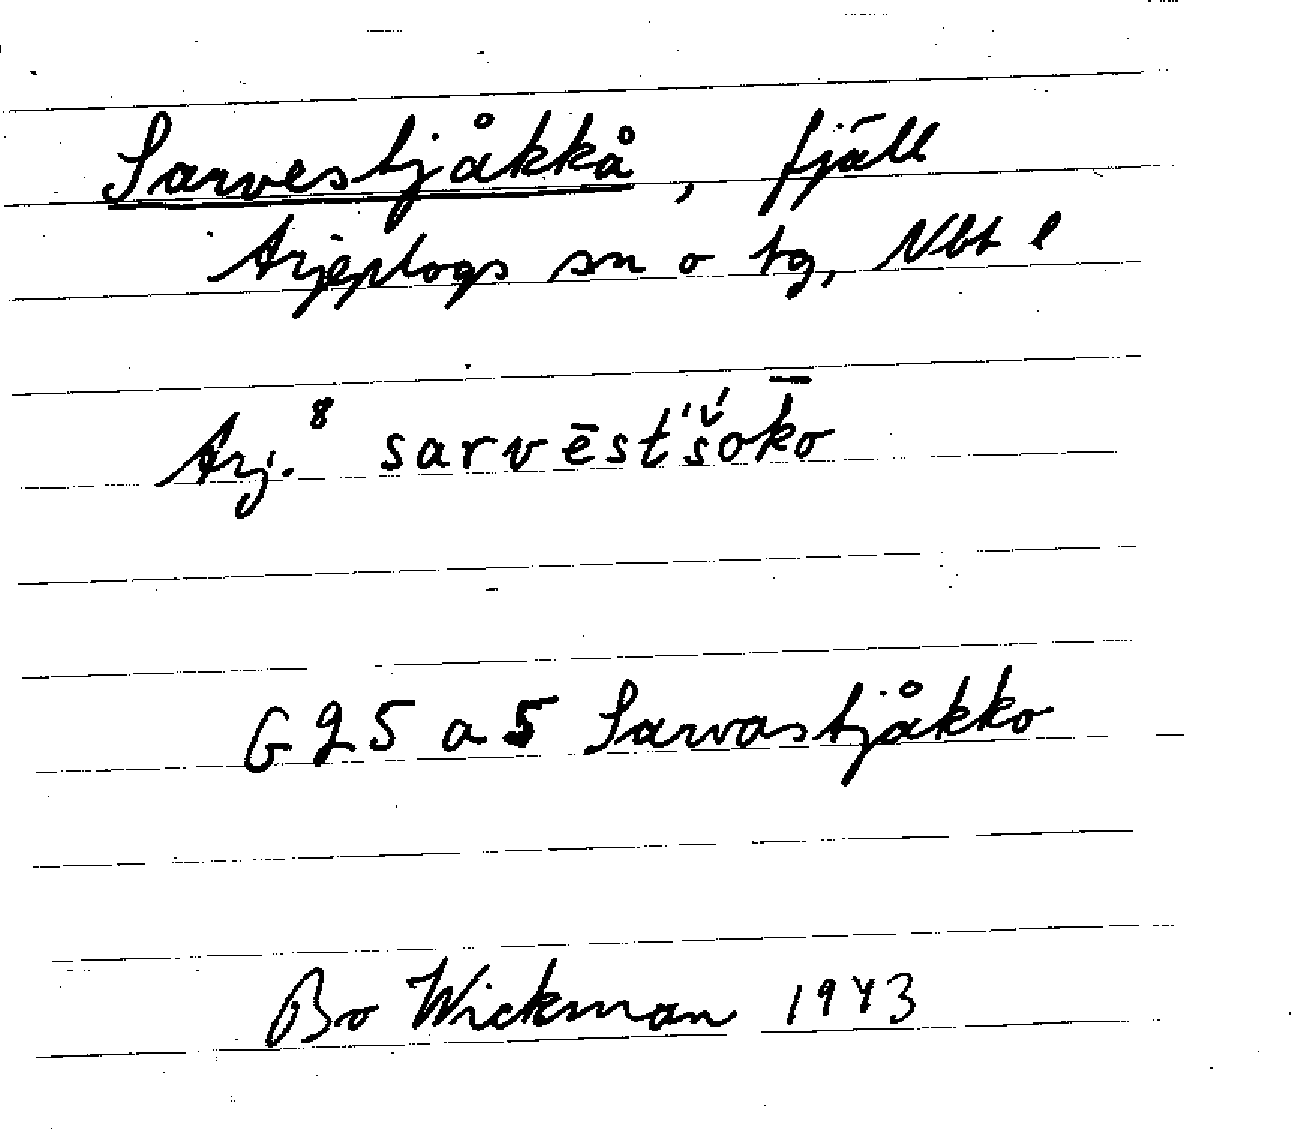 Sarvestjåkkå, fjäll
Arjeplogs sn o tg, Vbt l
Arj.⁸ sarvēst́š́ok̄o
G25 a 5 Sarvastjåkko
Bo Wickman 1943